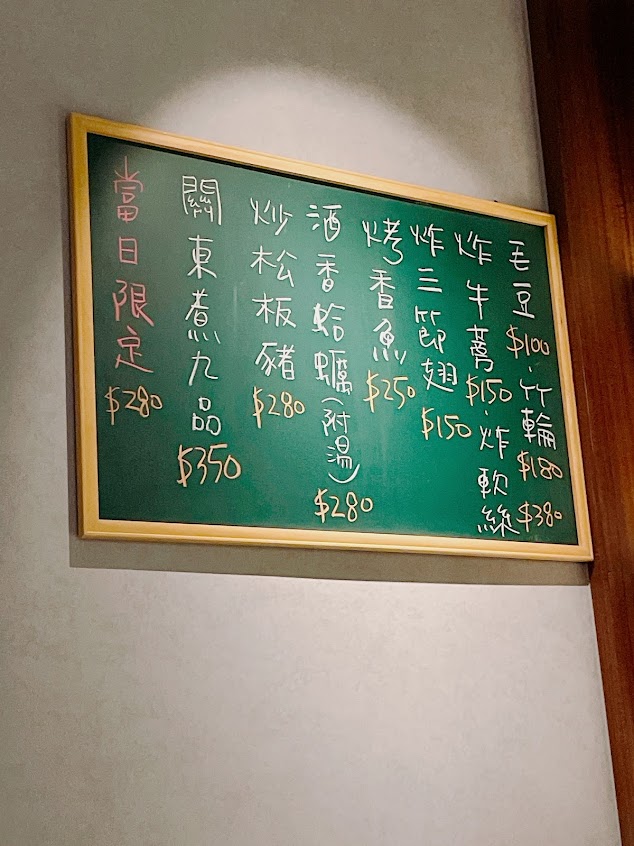 毛豆$100.竹輪$180
炸牛蒡$150.炸軟絲$380
炸三節翅$150
烤香魚$250
酒香蛤蠣(附湯)$280
炒松板豬$280
關東煮九品$350
當日限定$280